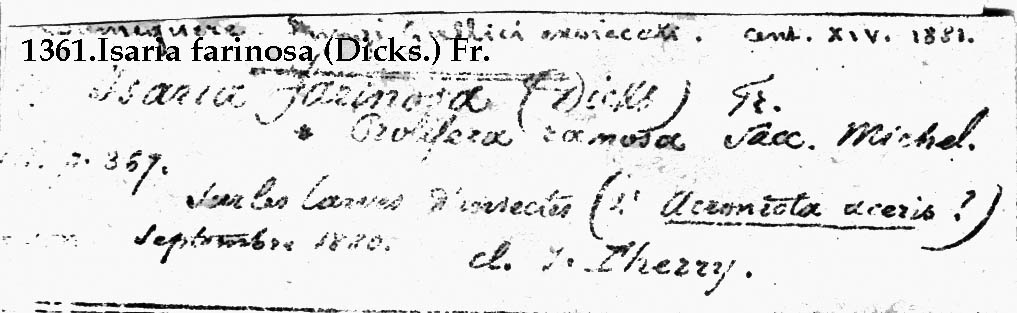 Roumeguère. Fungi Gallici exsiccati. Cent. XIV. 1881.
1361.Isaria farinosa (Dicks.) Fr.
Isaria farinosa (Dicks) Fr.
* Prolifera ramosa Sacc. Michel.
p. 367.
Sur les larves d'insectes ( Acronicta aceris ?)
Septembre 1880.
cl. J. Therry.